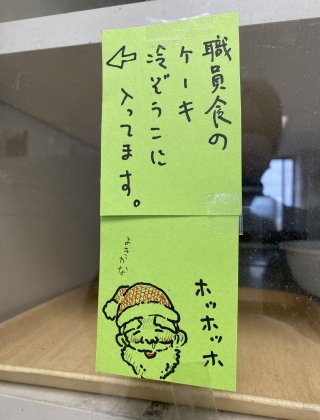 職員食の
ケーキ
冷ぞうこに
入ってます。
ホッホッホ